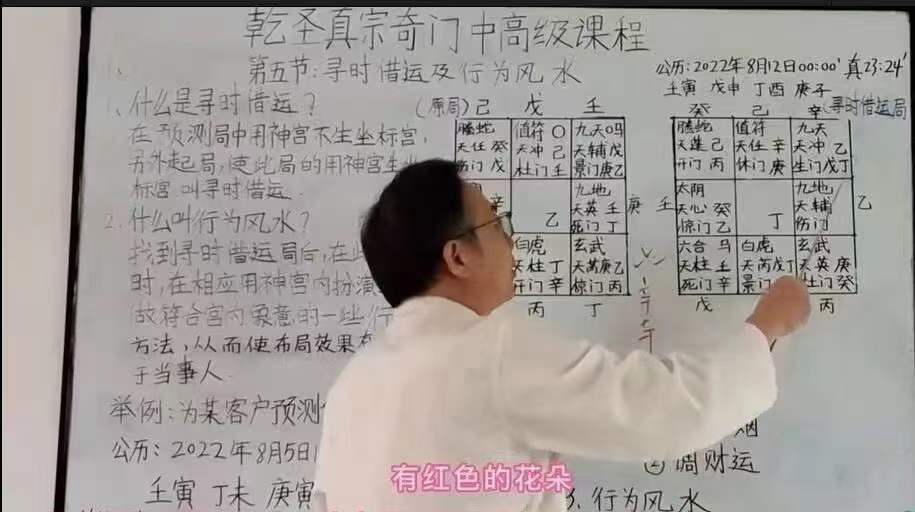 乾圣真宗奇门中高级课程
第五节:寻时借运及行为风水
1、什么是寻时借运?
在预测局中用神宫不生坐标宫,
另外起局,使此局的用神宫生坐
标宫叫寻时借运.
2.什么叫行为风水?
找到寻时借运局后,在此
时,在相应用神宫内扮演
做符合宫内象意的一些行
方法,从而使布局效果
于当事人.
举例:为某客户预测
公历:2022年8月5日
壬寅 丁未 庚寅
(原局)己 戊 壬
螣蛇 值符〇 九天〇马
天任癸 天冲己 天辅戊
伤门戊 杜门壬 景门庚乙
辛 乙 九地 庚
天英壬
死门丁
白虎 玄武
天柱丁 天芮庚乙
开门辛 惊门丙
丙 丁
公历:2022年8月12日00:00' 真23:24'
壬寅 戊申 丁酉 庚子
癸 己 辛(寻时借运局
螣蛇 值符 九天
天蓬己 天任辛 天冲乙
开门丙 休门庚 生门戊丁
壬 太阴 九地 乙
天心癸 丁 天辅
惊门乙 伤门
六合马 白虎 玄武
天柱壬 天芮戊丁 天英庚
死门辛 景门 杜门癸
戊 丙
烟
②调财运
行为风水
有红色的花朵